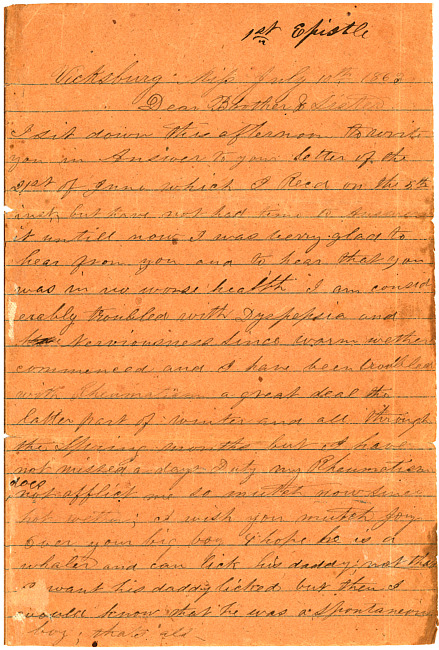 1st Epistle
Vicksburg Miss July 10th 186
Dear Brother & Sister
I sit down this afternoon to write
you an Answer to your letter of the
21st of June which I Recd on the 5th
inst, but have not had time to answer
it untill now I was verry glad to
hear from you and to hear that you
was in no worse health I am consid
erably troubled with Dyspepsia and
Nerviousness Since warm wether
commenced and I have been troubled
with Rhumatism a great deal the
latter part of winter and all through
the Spring months but I have
not missed a days Duty my Rheumatism
does not afflict me so mutch now since
hot I wish you mutch Joy
over your big boy I hope he is a
whaler and can lick his daddy, not that
I want his daddy licked but then I
would know that he was a Spontaneous
boy, thats all